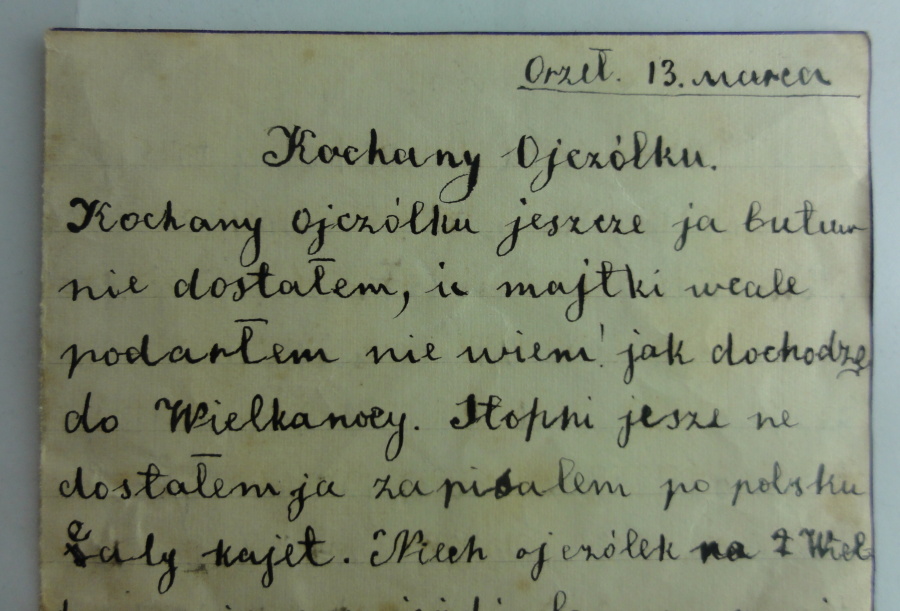 Orzeł. 13. marca
Kochany Ojczólku.
Kochany ojczólku jeszcze ja butuw
nie dostałem, i majtki wcale
podarłem nie wiem jak dochodzę
do Wielkanocy. Stopni jesze ne
dostałem ja zapisałem po polsku
cały kajet. Niech ojczólek na 2 Wiel